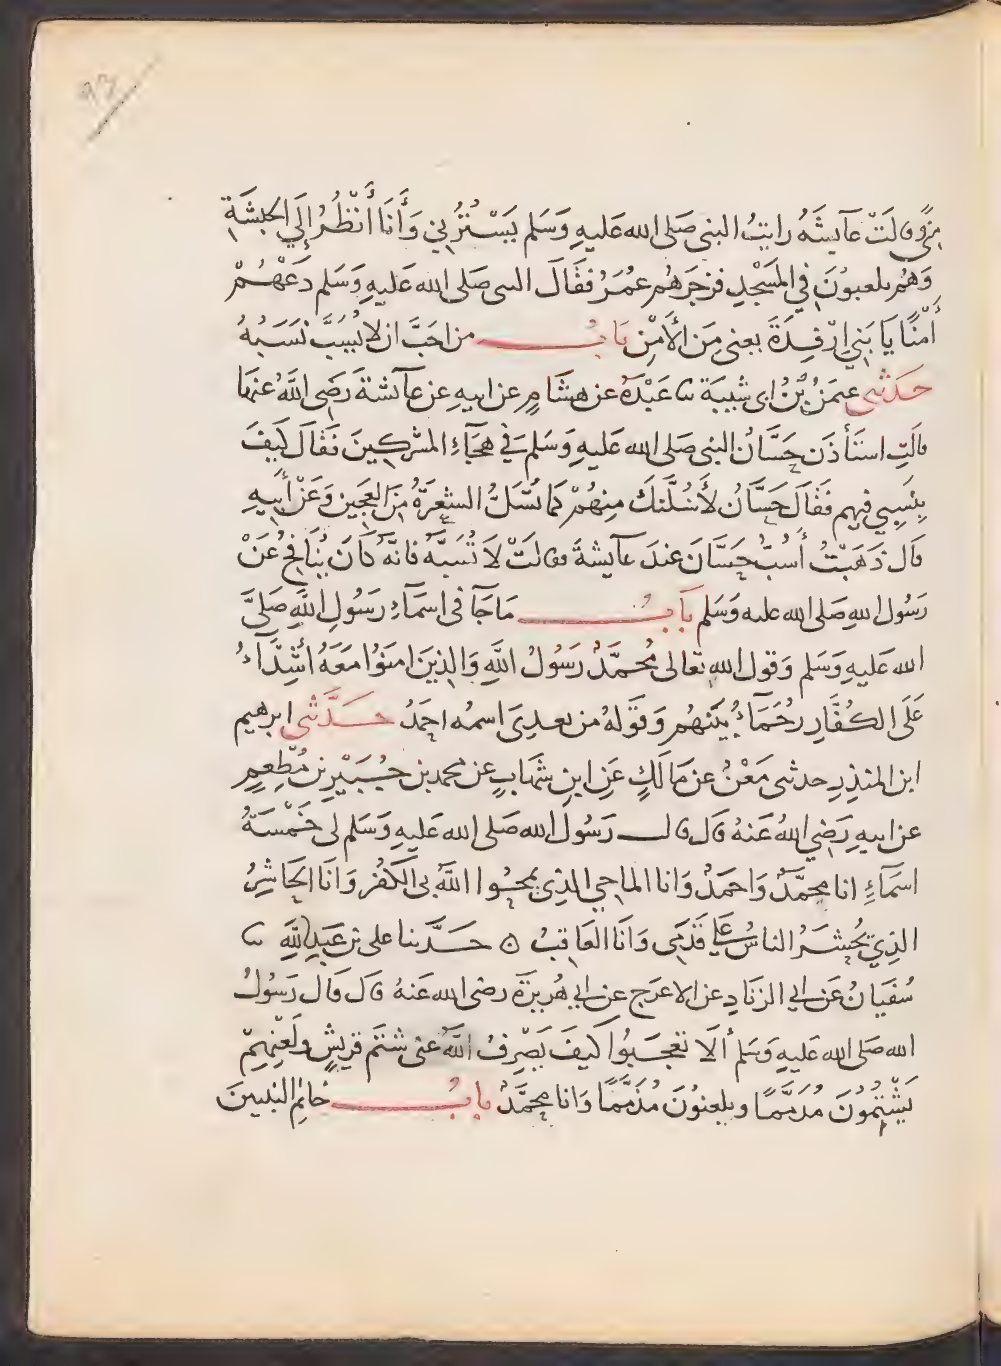 ٩٣
مِنًى وقالَتْ عآيشَهُ رايتُ النبى صَلى الله عَليهِ وَسَلم يَسْتُرُنِي وَأنَا أنْظُرُ إلَي الحبشَةِ
وَهُم يلعبوُنَ فِي المَسْجِدِ فزجَرَهُم عمُرَ فقَالَ النبى صَلى الله عَليهِ وَسَلم دَعْهُمْ
أمْنًا يَا بَنِي ارْفِدَةَ يعنى مِنَ الأَمْنِ بَابُ من احَبَّ ان لا يُسَبَّ نسَبُهُ
حَدثنى عثمَنُ بْنُ ابى شيبَة ثنا عَبْدَةُ عن هشَامٍ عن ابيهِ عن عآئشةَ رَضى اللَّهُ عنهَا
قالَتِ استَأذَن حَسَّانُ النبى صَلى الله عَليهِ وَسَلم فِي هِجَآءِ المشركِينَ فقَالَ كَيفَ
بِنَسِبِي فِيهِم فقَالَ حَسَّانُ لأَسُلَّنكَ مِنهُمْ كما تُسَلُّ الشعَرَةُ مِنَ العَجِينِ وَعَنْ أبِيهِ
قال ذَهَبْتُ أسُبُّ حَسَّانَ عندَ عآيشةَ فقالَتْ لاَ تُسَبَّهُ فانَّهُ كانَ يُنَافِحُ عَنْ
رَسُول اللهِ صَلى الله عليه وَسَلم بَابُ مَا جَآ فى اسمَآءِ رَسُولِ اللَّهِ صَلىَّ
الله عَليهِ وَسَلم وَقول اللهِ تعَالى مُحمَّدُ رَسُولُ اللَّهِ وَالذِينَ امنوُا مَعَهُ أشِدَّآءُ
عَلَى الكُفَّارِ رحُمَآءُ بيَنهُم وَقوَلهُ من بعدِىَ اسمُه احمَدُ حَدَّثنى ابرهيم
ابن المنذِرِ حدثنى مَعْنُ عن مَالَكٍ عَنِ ابنِ شهَابٍ عن محمد بن جُبَيْرِ بن مُطْعِمٍ
عن ابيهِ رَضِي اللهُ عَنهُ قال قال رَسُولُ الله صَلى الله عَليهِ وَسَلم لى خَمْسَةُ
اسمَآءِ انا محِمَّدُ وَاحمَدُ وَانا الماحِي الذِى يمحُوا اللَّهُ بى الكُفْرَ وَانَا الحَاشِرُ
الذِي يحُشَرُ الناسُ علَي قدَمَى وَانَا العَاقِبُ ٥ حَدَّثنا على بن عَبدِ اللَّهِ ثنا
سُفيَانُ عَن ابي الزنَادِ عن الاعرَج عن ابي هُريرَةَ رضى الله عَنهُ قال قال رَسُولُ
الله صَلى الله عَليهِ وَسَلم ألَا تعجَبوُا كَيفَ يَصْرِفُ اللَّهُ عنى شتمَ قريشٍ وَلَعْنِهِمْ
يَشْتِمُونَ مُذمَّمًا ويلعنوُنَ مُذَمَّمًا وَانا محِمَّدُ بابُ خاتِم النبيينَ